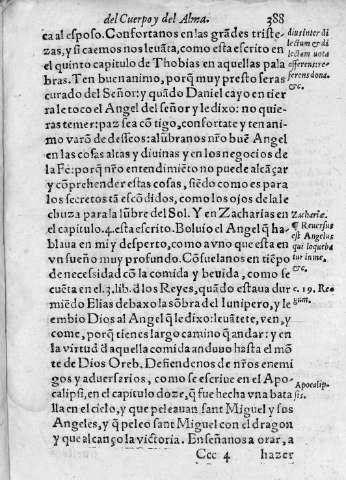 del Cuerpo y del Alma. 388
ca al esposo. Confortanos en las grãdes triste
zas, y si caemos nos leuãta, como esta escrito en
el quinto capitulo de Thobias en aquellas pala
bras. Ten buen animo, porq̃ muy presto seras
curado del Señor: y quãdo Daniel cayo en tier
ra le toco el Angel del señor y le dixo: no quie-
ras temer: paz sea cõ tigo, confortate y ten ani
mo varõ de desseos: alũbranos nr̃o buẽ Angel
en las cosas altas y diuinas y en los negocios de
la Fe: porq̃ nr̃o entendimiẽto no puede alcãçar
y cõprehender estas cosas, siẽdo como es para
los secretos tã escõdidos, como los ojos de la le
chuza para la lũbre del Sol. Y en Zacharias en
el capitulo. 4. esta escrito. Boluio el Angel q̃ ha
blaua en mi y desperto, como a vno que esta en
vn sueño muy profundo. Cõsuelanos en tiẽpo
de necesidad cõ la comida y beuida, como se
cuẽta en el. 3. lib. d̃ los Reyes, quãdo estaua dur
miẽdo Elias debaxo la sõbra del Iunipero, y le
embio Dios al Angel q̃ le dixo: leuãtete, ven, y
come, porq̃ tienes largo camino q̃ andar: y en
la virtud d̃ aquella comida anduuo hasta el mõ
te de Dios Oreb. Defiendenos de nr̃os enemi
gos y aduersarios, como se escriue en el Apo-
calipsi, en el capitulo doze, q̃ fue hecha vna bata
lla en el cielo, y que peleauan sant Miguel y sus
Angeles, y q̃ peleo sant Miguel con el dragon
y que alcanço la victoria. Enseñanos a orar, a
Ccc 4 hazer
dius inter di
lectum & di
lectam uota
offerens re-
ferens dona.
&c.
Zachariæ.
¶ Reuersus
est Angelus
qui loqueba
tur in me.
&c.
c. 19. Re
gum.
Apocalip-
sis.